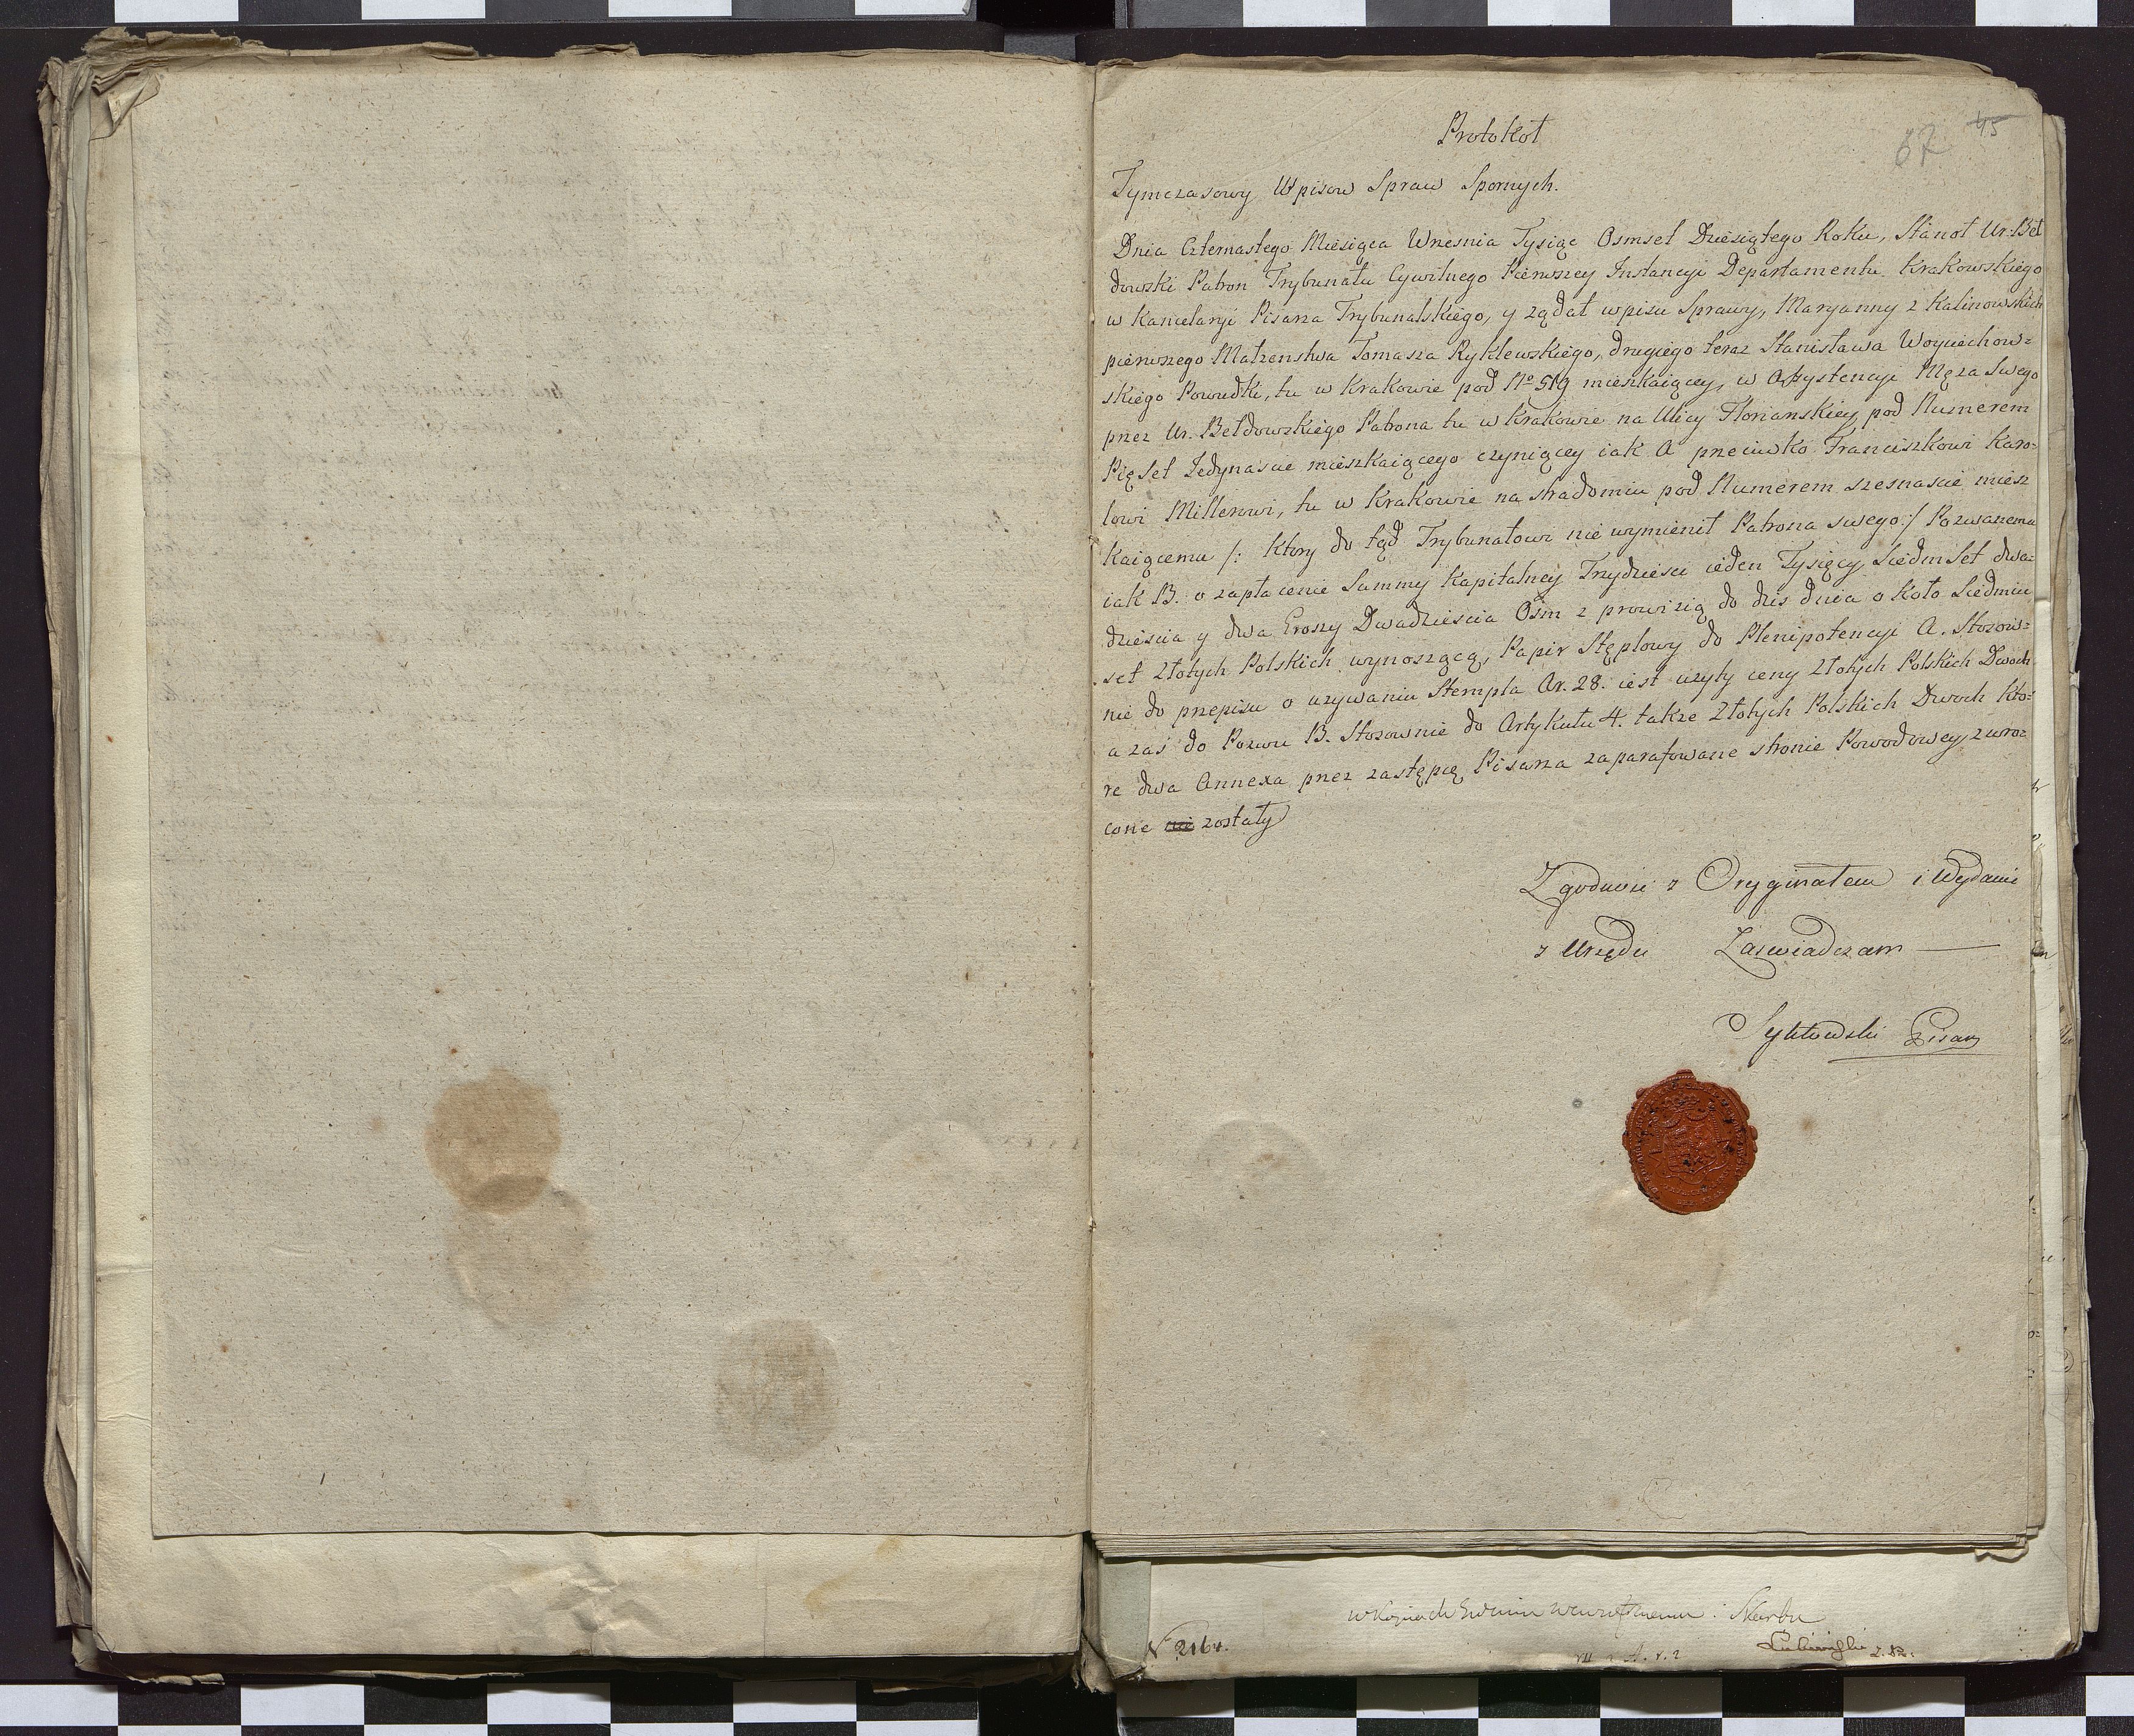 Protokół
67 45
Tymczasowy Wpisow Spraw Spornych.
Dnia Czternastego Miesiąca Wrzesnia Tysiąc Osmset Dziesiątego Roku, Stanoł Ur: Beł
dowski Patron Trybunału Cywilnego Pierwszey Instancyi Departamentu Krakowskiego
w Kancelaryi Pisarza Trybunalskiego, y ząđał wpisu Sprawy, Maryanny z Kalinowskich
pierwszego Małzenstwa Tomasza Ryklewskiego, drugiego teraz Stanisława Woyciechow=
skiego Powodki, tu w Krakowie pod No 519 mieszkaiącey, w Assystencyi Męza Swego
przez Ur. Bełdowskiego Patrona tu w Krakowie na Ulicy Floriańskiey pod Numerem
Pięset Jedynascie mieszkaiącego czyniącey iak A przeciwko Franciszkowi Karo=
lowi Millerowi, tu w Krakowie na Stradomiu pod Numerem szesnascie miesz
kaiącemu /: ktory do tąd Trybunałowi nie wymienił Patrona swego :/ Pozwanemu
iak B. o zapłacenie Summy Kapitalney Trzydziesci ieden Tysięcy Siedmset dwa=
dzieścia y dwa Groszy Dwadzieścia Ośm z prowizią do dzis dnia o koło Siedmiu
set Złotych Polskich wynoszącą, Papir Stęplowy do Plenipotencyi A. Stosow=
nie do przepisu o uzywaniu Stempla Ar. 28. iest uzyty ceny Złotych Polskich Dwoch
a zaś do Pozwu B. Stosownie do Artykułu 4. takze Złotych Polskich Dwoch kto=
re dwa Annexa przez zastępcę Pisarza zaparafowane stronie Powodowey zwro=
cone zostały
Zgodność z Oryginałem i Wydanie
z Urzędu Zaswiadczam
Pisarz
Skarbu
N 2164.